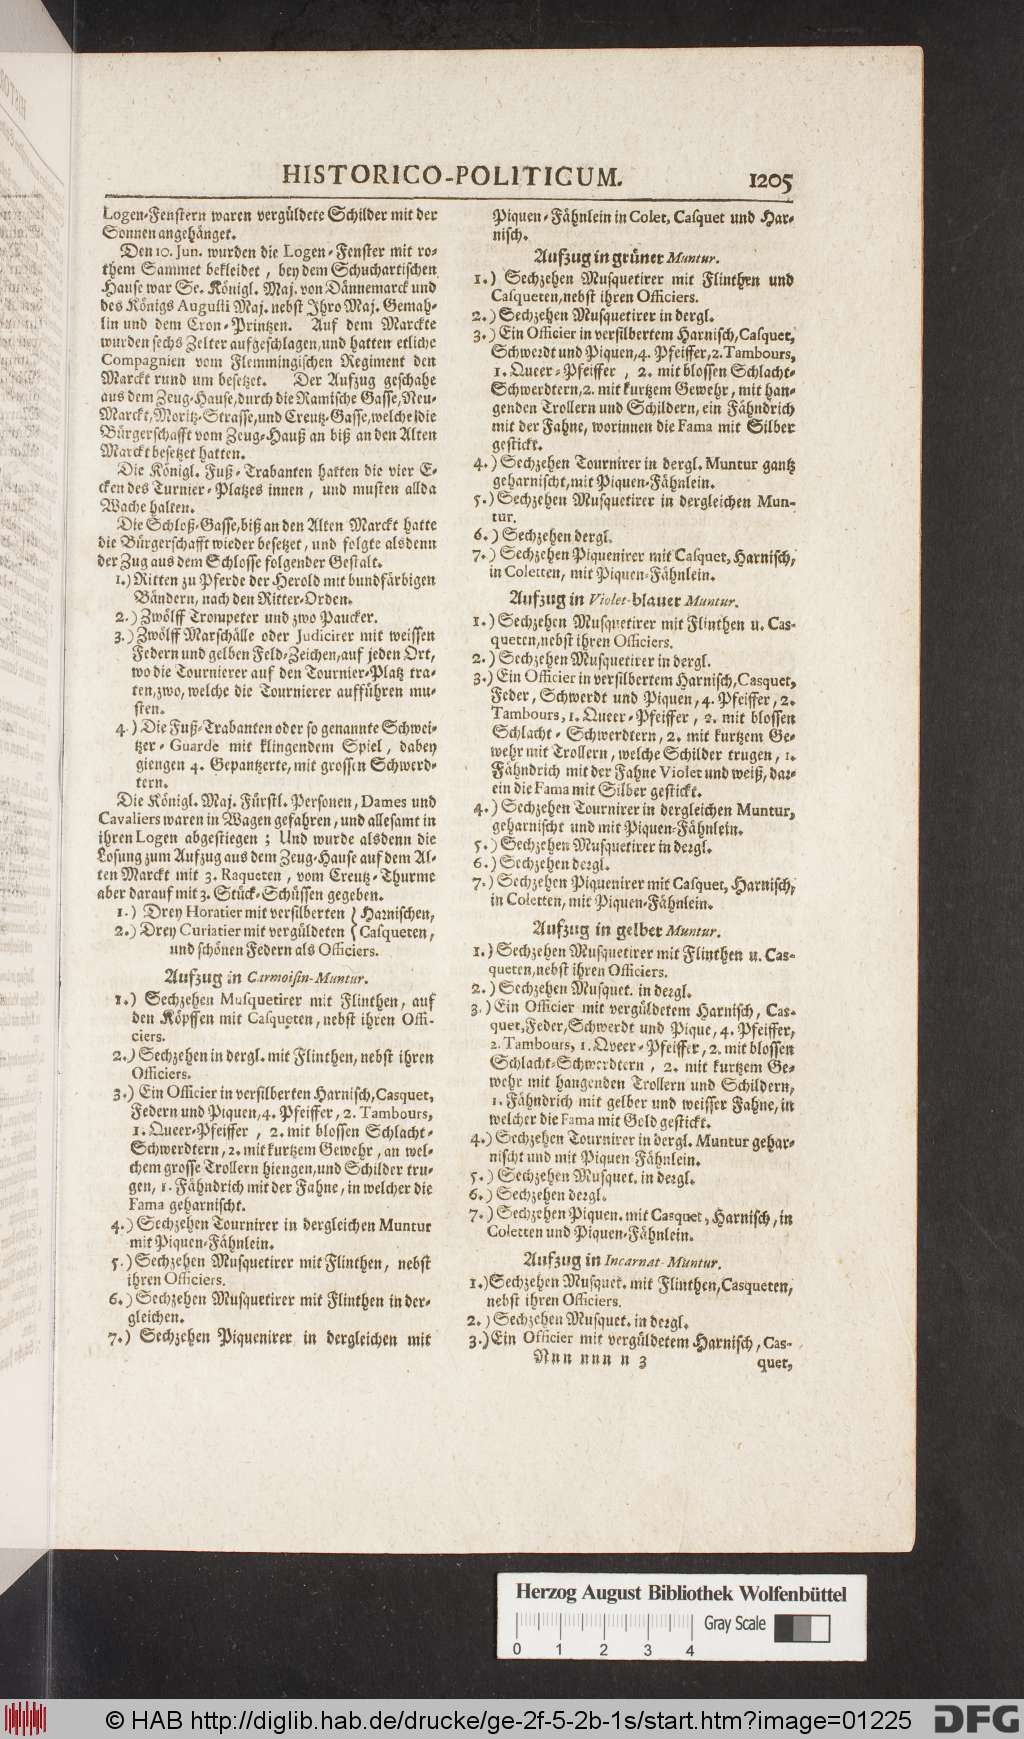 HISTORICO-POLITICUM. 1205
Logen-Fenstern waren vergüldete Schilder mit der
Sonnen angehänget.
Den 10. Jun. wurden die Logen-Fenster mit ro-
them Sammet bekleidet, bey dem Schuchartischen
Hause war Se. Königl. Maj. von Dännemarck und
des Königs Augusti Maj. nebst Ihro Maj. Gemah-
lin und dem Cron-Printzen. Auf dem Marckte
wurden sechs Zelter aufgeschlagen, und hatten etliche
Compagnien vom Flemmingischen Regiment den
Marckt rund um besetzet. Der Aufzug geschahe
aus dem Zeug-Hause, durch die Ramische Gasse, Neu-
Marckt, Moritz-Strasse, und Creutz-Gasse, welche die
Bürgerschafft vom Zeug-Hauß an biß an den Alten
Marckt besetzet hatten.
Die Königl. Fuß-Trabanten hatten die vier E-
cken des Turnier-Platzes innen, und musten allda
Wache halten.
Die Schloß-Gasse, biß an den Alten Marckt hatte
die Bürgerschafft wieder besetzet, und folgte alsdenn
der Zug aus dem Schlosse folgender Gestalt.
1.) Ritten zu Pferde der Herold mit bundfärbigen
Bändern, nach den Ritter-Orden.
2.) Zwölff Trompeter und zwo Paucker.
3.) Zwölff Marschälle oder Judicirer mit weissen
Federn und gelben Feld-Zeichen, auf jeden Ort,
wo die Tournierer auf den Tournier-Platz tra-
ten, zwo, welche die Tournierer aufführen mu-
sten.
4.) Die Fuß-Trabanten oder so genannte Schwei-
tzer-Guarde mit klingendem Spiel, dabey
giengen 4. Gepantzerte, mit grossen Schwerd-
tern.
Die Königl. Maj. Fürstl. Personen, Dames und
Cavaliers waren in Wagen gefahren, und allesamt in
ihren Logen abgestiegen; Und wurde alsdenn die
Losung zum Aufzug aus dem Zeug-Hause auf dem Al-
ten Marckt mit 3. Raqueten, vom Creutz-Thurme
aber darauf mit 3. Stück-Schüssen gegeben.
1.) Drey Horatier mit versilberten { Harnischen,
2.) Drey Curiatier mit vergüldeten { Casqueten,
und schönen Federn als Officiers.
Aufzug in Carmoisin-Muntur.
1.) Sechzehen Musquetirer mit Flinthen, auf
den Köpffen mit Casqueten, nebst ihren Offi-
ciers.
2.) Sechzehen in dergl. mit Flinthen, nebst ihren
Officiers.
3.) Ein Officier in versilberten Harnisch, Casquet,
Federn und Piquen, 4. Pfeiffer, 2. Tambours,
1. Queer-Pfeiffer, 2. mit blossen Schlacht-
Schwerdtern, 2. mit kurtzem Gewehr, an wel-
chem grosse Trollern hiengen, und Schilder tru-
gen, 1. Fähndrich mit der Fahne, in welcher die
Fama geharnischt.
4.) Sechzehen Tournirer in dergleichen Muntur
mit Piquen-Fähnlein.
5.) Sechzehen Musquetirer mit Flinthen, nebst
ihren Officiers.
6.) Sechzehen Musquetirer mit Flinthen in der-
gleichen.
7.) Sechzehen Piquenirer in dergleichen mit
Piquen-Fähnlein in Colet, Casquet und Har-
nisch.
Aufzug in grüner Muntur.
1.) Sechzehen Musquetirer mit Flinthen und
Casqueten, nebst ihren Officiers.
2.) Sechzehen Musquetirer in dergl.
3.) Ein Officier in versilbertem Harnisch, Casquet,
Schwerdt und Piquen, 4. Pfeiffer, 2. Tambours,
1. Queer-Pfeiffer, 2. mit blossen Schlacht-
Schwerdtern, 2. mit kurtzem Gewehr, mit han-
genden Trollern und Schildern, ein Fähndrich
mit der Fahne, worinnen die Fama mit Silber
gestickt.
4.) Sechzehen Tournirer in dergl. Muntur gantz
geharnischt, mit Piquen-Fähnlein.
5.) Sechzehen Musquetirer in dergleichen Mun-
tur.
6.) Sechzehen dergl.
7.) Sechzehen Piquenirer mit Casquet, Harnisch,
in Coletten, mit Piquen-Fähnlein.
Aufzug in Violet-blauer Muntur.
1.) Sechzehen Musquetirer mit Flinthen u. Cas-
queten, nebst ihren Officiers.
2.) Sechzehen Musquetirer in dergl.
3.) Ein Officier in versilbertem Harnisch, Casquet,
Feder, Schwerdt und Piquen, 4. Pfeiffer, 2.
Tambours, 1. Queer-Pfeiffer, 2. mit blossen
Schlacht-Schwerdtern, 2. mit kurtzem Ge-
wehr mit Trollern, welche Schilder trugen, 1.
Fähndrich mit der Fahne Violet und weiß, dar-
ein die Fama mit Silber gestickt.
4.) Sechzehen Tournirer in dergleichen Muntur,
geharnischt und mit Piquen-Fähnlein.
5.) Sechzehen Musquetirer in dergl.
6.) Sechzehen dergl.
7.) Sechzehen Piquenirer mit Casquet, Harnisch,
in Coletten, mit Piquen-Fähnlein.
Aufzug in gelber Muntur.
1.) Sechzehen Musquetirer mit Flinthen u. Cas-
queten, nebst ihren Officiers.
2.) Sechzehen Musquet. in dergl.
3.) Ein Officier mit vergüldetem Harnisch, Cas-
quet, Feder, Schwerdt und Pique, 4. Pfeiffer,
2. Tambours, 1. Queer-Pfeiffer, 2. mit blossen
Schlacht-Schwerdtern, 2. mit kurtzem Ge-
wehr mit hangenden Trollern und Schildern,
1. Fähndrich mit gelber und weisser Fahne, in
welcher die Fama mit Gold gestickt.
4.) Sechzehen Tournirer in dergl. Muntur gehar-
nischt und mit Piquen Fähnlein.
5.) Sechzehen Musquet. in dergl.
6.) Sechzehen dergl.
7.) Sechzehen Piquen. mit Casquet, Harnisch, in
Coletten und Piquen-Fähnlein.
Aufzug in Incarnat-Muntur.
1.) Sechzehen Musquet. mit Flinthen, Casqueten,
nebst ihren Officiers.
2.) Sechzehen Musquet. in dergl.
3.) Ein Officier mit vergüldetem Harnisch, Cas-
Nnn nnn n 3 quet,
Herzog August Bibliothek Wolfenbüttel
Gray Scale
0 1 2 3 4
© HAB http://diglib.hab.de/drucke/ge-2f-5-2b-1s/start.htm?image=01225 DFG